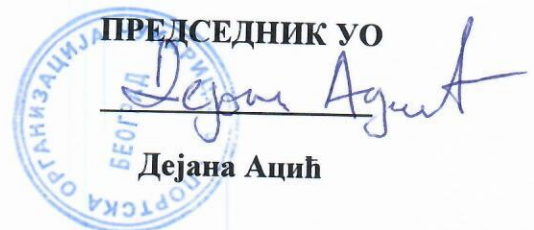 ПРЕДСЕДНИК УО
Дејана Ацић
Дејана Ацић
ОРГАНИЗАЦИЈА
БЕОГРАД